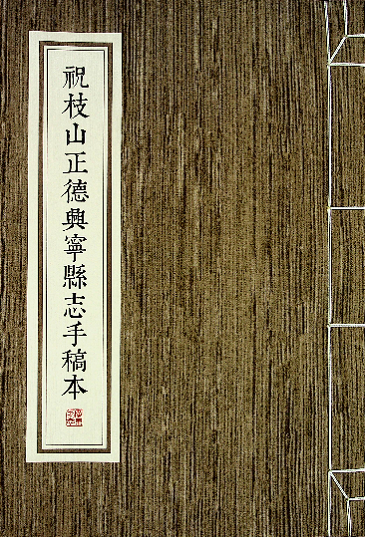 祝枝山正德興寧縣志手稿本